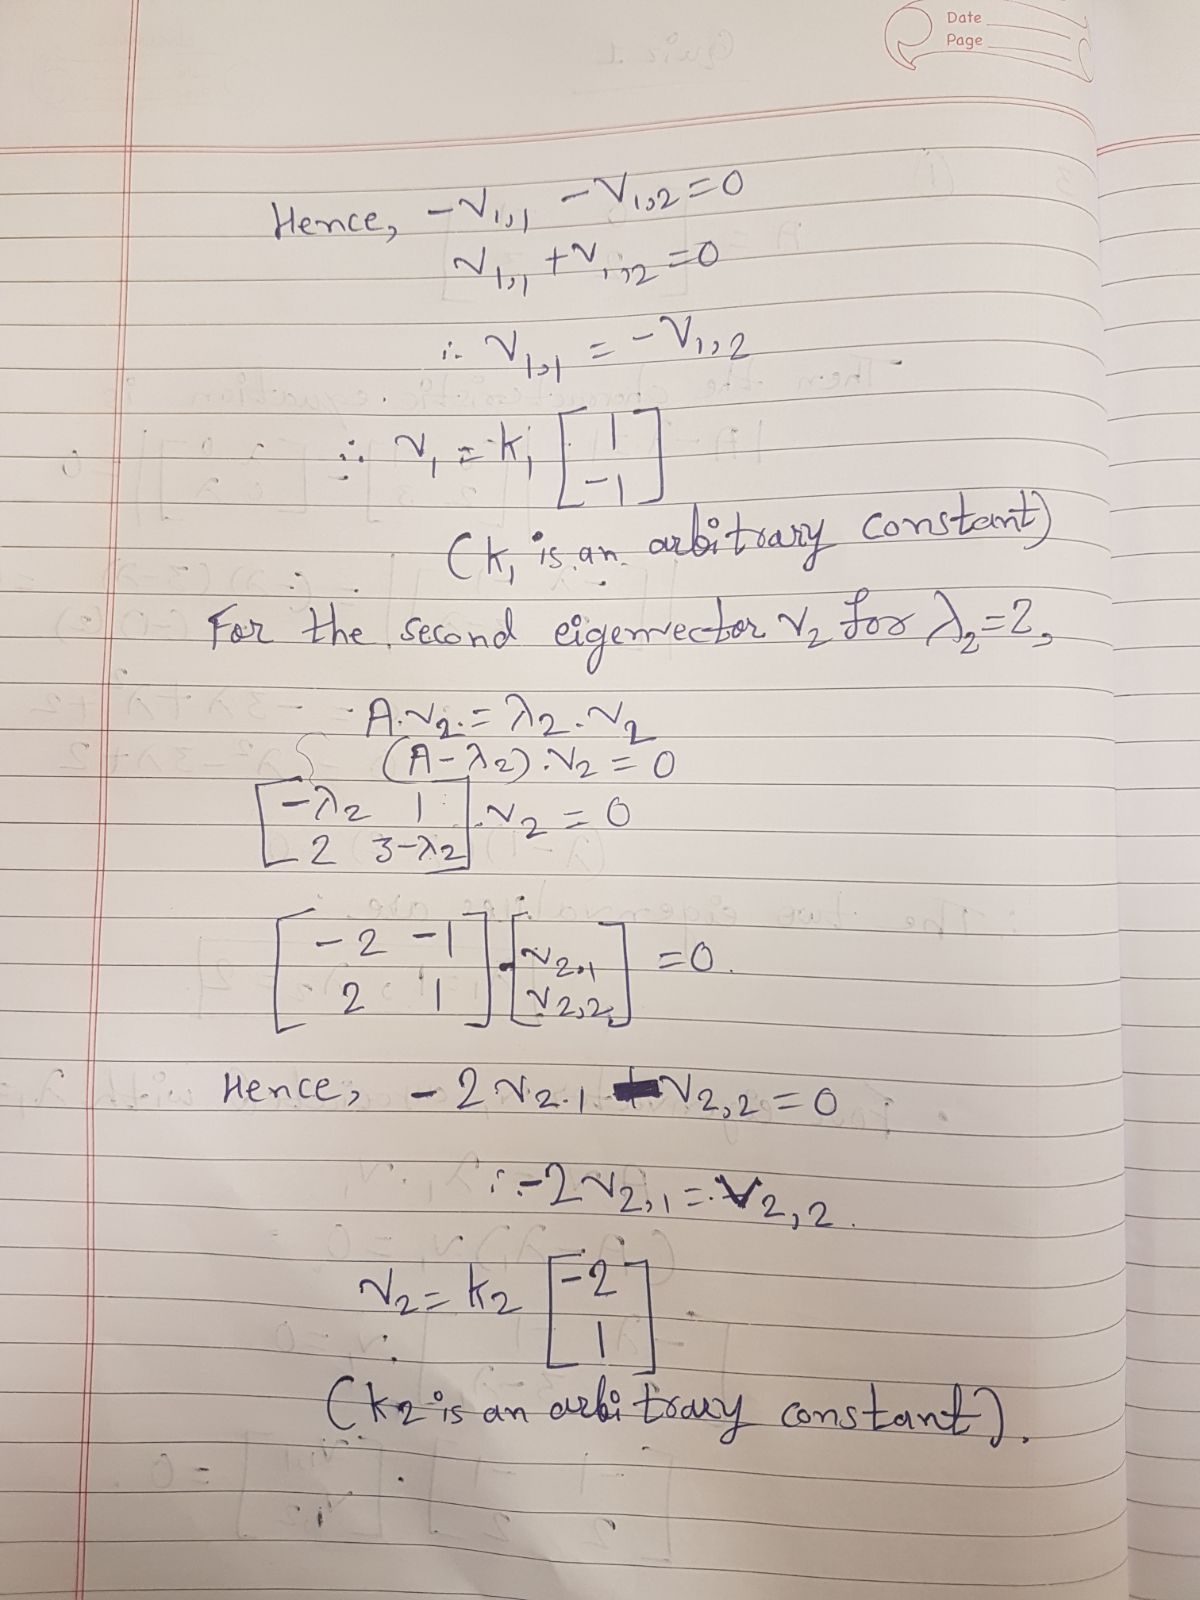 Date
Page
Hence, -v₁,₁ - v₁,₂ = 0
v₁,₁ + v₁,₂ = 0
∴ v₁,₁ = -v₁,₂
∴ v₁ = k₁ [ 1
-1 ]
(k₁ is an arbitrary constant)
For the second eigenvector v₂ for λ₂=2,
A.v₂ = λ₂.v₂
(A-λ₂).v₂ = 0
[ -λ₂ 1
2 3-λ₂ ] .v₂ = 0
[ -2 -1
2 1 ] . [ v₂.₁
v₂,₂ ] = 0.
Hence, -2v₂.₁ v₂,₂ = 0
∴ -2v₂,₁ = v₂,₂.
v₂ = k₂ [ -2
∴ 1 ]
(k₂ is an arbitrary constant).